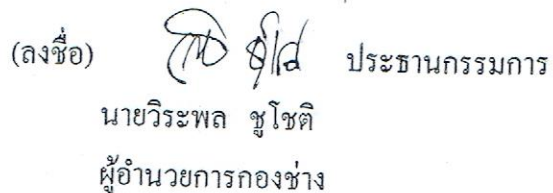 (ลงชื่อ) ประธานกรรมการ
นายวิระพล ชูโชติ
ผู้อำนวยการกองช่าง